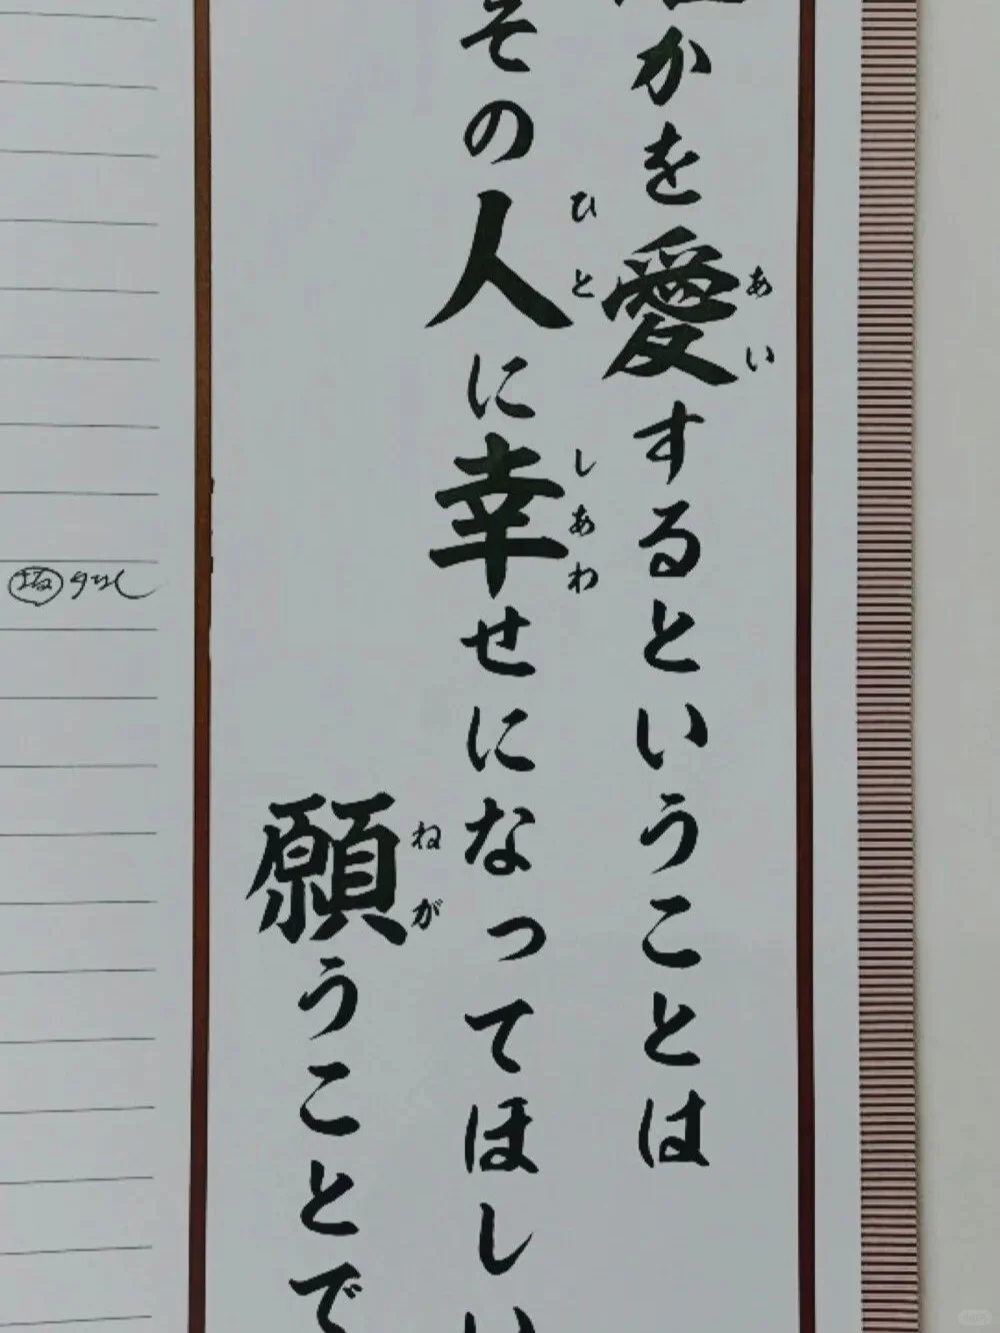 かを愛するということは
あい
その人に幸せになってほしい
ひと
しあわ
願うことで
ねが